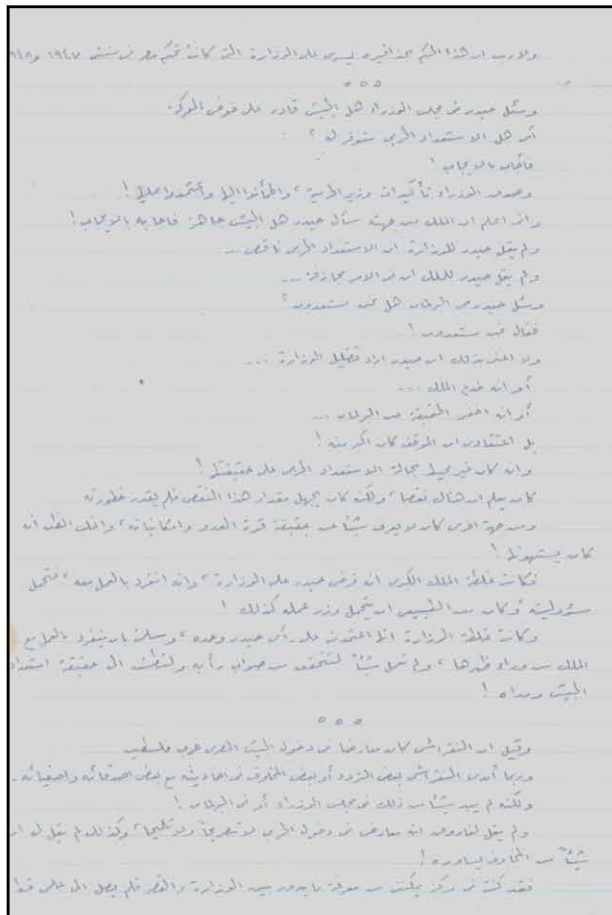 ولا ريب ان هذا الحكم بحذافيره يسرى على الوزارة التى كانت تحكم مصر فى سنتى ١٩٤٧ و١٩٤٨
٥٥٥
وسئل حيدر فى مجلس الوزراء هل الجيش قادر على خوض المعركة
أى هل الاستعداد الحربى متوفر له ؟
فأجاب بالايجاب !
وصدق الوزراء تأكيدات وزير الحربية ، واطمأنوا اليها واعتمدوا عليها !
وانى اعلم ان الملك من جهته سأل حيدر هل الجيش جاهز فاجابه بالايجاب !
ولم يقل حيدر للوزارة ان الاستعداد الحربى ناقص ...
ولم يقل حيدر للملك ان فى الامر مجازفة ...
وسئل حيدر من البرلمان هل نحن مستعدون ؟
فقال نحن مستعدون !
ولا اعنى بذلك ان حيدر اراد تضليل الوزارة ...
أو انه خدع الملك ...
أو انه اخفى الحقيقة عن البرلمان ...
بل اعتقادى ان الموقف كان اكبر منه !
وانه كان غير محيط بحالة الاستعداد الحربى على حقيقتها !
كان يعلم ان هناك نقصا ، ولكنه كان يجهل مقدار هذا النقص فلم يقدر خطورته
ومن جهة اخرى كان لا يعرف شيئا عن حقيقة قوة العدو وامكانياته ، واغلب الظن انه
كان يستهونها !
فكانت غلطة الملك الكبرى انه فرض حيدر على الوزارة ، وانه انفرد بالعمل معه ، فتحمل
مسئوليته وكان من الطبيعى ان يتحمل وزر عمله كذلك !
وكانت غلطة الوزارة انها اعتمدت على رأى حيدر وحده ، وسلمت بان ينفرد بالعمل مع
الملك من وراء ظهرها ، ولم تعمل شيئا لتتحقق من صواب رأيه ولتطمئن الى حقيقة استعداد
الجيش ومداه !
٥٥٥
وقيل ان النقراشى كان معارضا فى دخول الجيش المصرى حرب فلسطين
وربما أبدى النقراشى بعض التردد أو بعض المخاوف فى احاديثه مع بعض اصدقائه واصفيائه ..
ولكنه لم يبد شيئا من ذلك فى مجلس الوزراء أو فى البرلمان !
ولم يقل لفاروق انه معارض فى دخول الحرب لا تصريحا ولا تلميحا ، وكذلك لم يقل له ان
شيئا من المخاوف يساوره !
فقد كنت فى مركز يمكننى من معرفة ما يدور بين الوزارة والقصر فلم يصل الى علمى قط